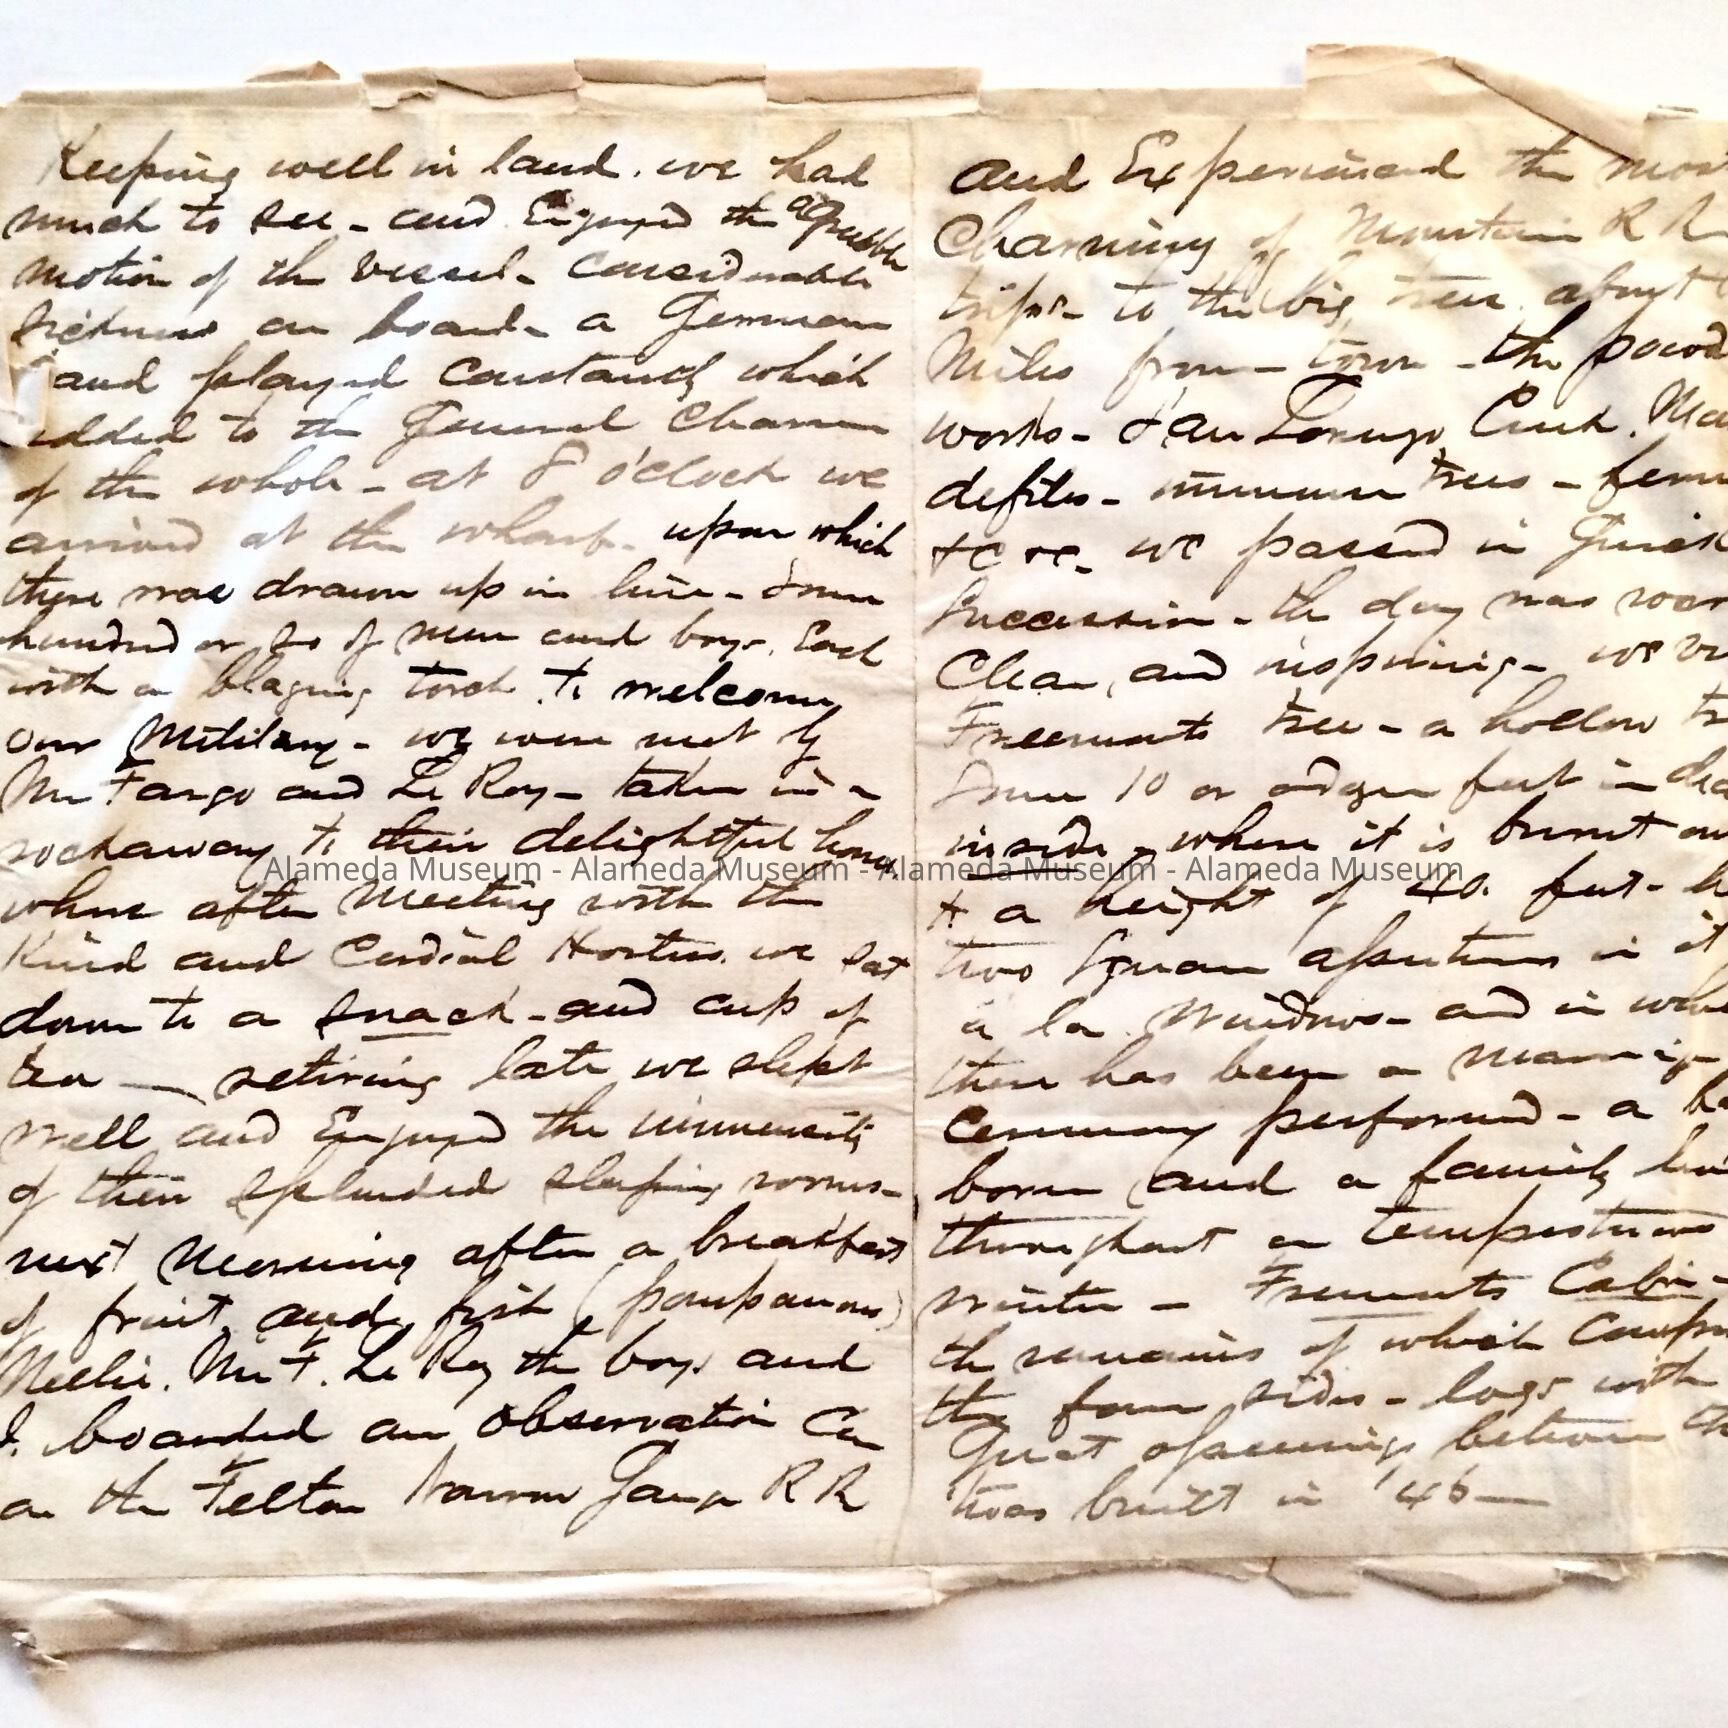 Keeping well in land. we had
much to see - and Enjoyed the agreeable
motion of the vessel - Considerable
sickness on board - a German
band played constantly which
added to the General Charm
of the whole - at 8 o'clock we
arrived at the wharf - upon which
there was drawn up in line - Some
hundred or so of men and boys. Each
with a blazing torch to welcome
our Military - we were met by
Mr Fargo and Le Roy - taken in a
rockaway to their delightful home
where after Meeting with the
Kind and Cordial Hostess. we sat
down to a snack - and cup of
tea — retiring late we slept
well and Enjoyed the immensity
of their splendid sleeping rooms -
next Morning after a breakfast
of fruit and fish (pompanos)
Nellie. Mr F. Le Roy the boys and
I. boarded an observation Car
on the Felton Narrow Gauge R R
and Experienced the most
Charming of Mountain R R
trips - to the big trees about
Miles from town - the powd
works - San Lorenzo Creek. Ma
defiles - immense trees - ferns
&c &c - we passed in Quick
Succession - the day was war
Clear, and inspiring - we
Freemonts tree - a hollow tr
Some 10 or feet in dia
inside - where it is burnt ou
to a height of 40. feet - h
two Square apertures in it
a la Windows - and in whi
there has been a marriage
Ceremony performed - a ba
born (and a family liv
throughout a tempestuous
winter - Fremonts Cabin -
the remains of which Compr
the four sides - logs with
Great openings between th
twas built in '46 —
Alameda Museum - Alameda Museum - Alameda Museum - Alameda Museum